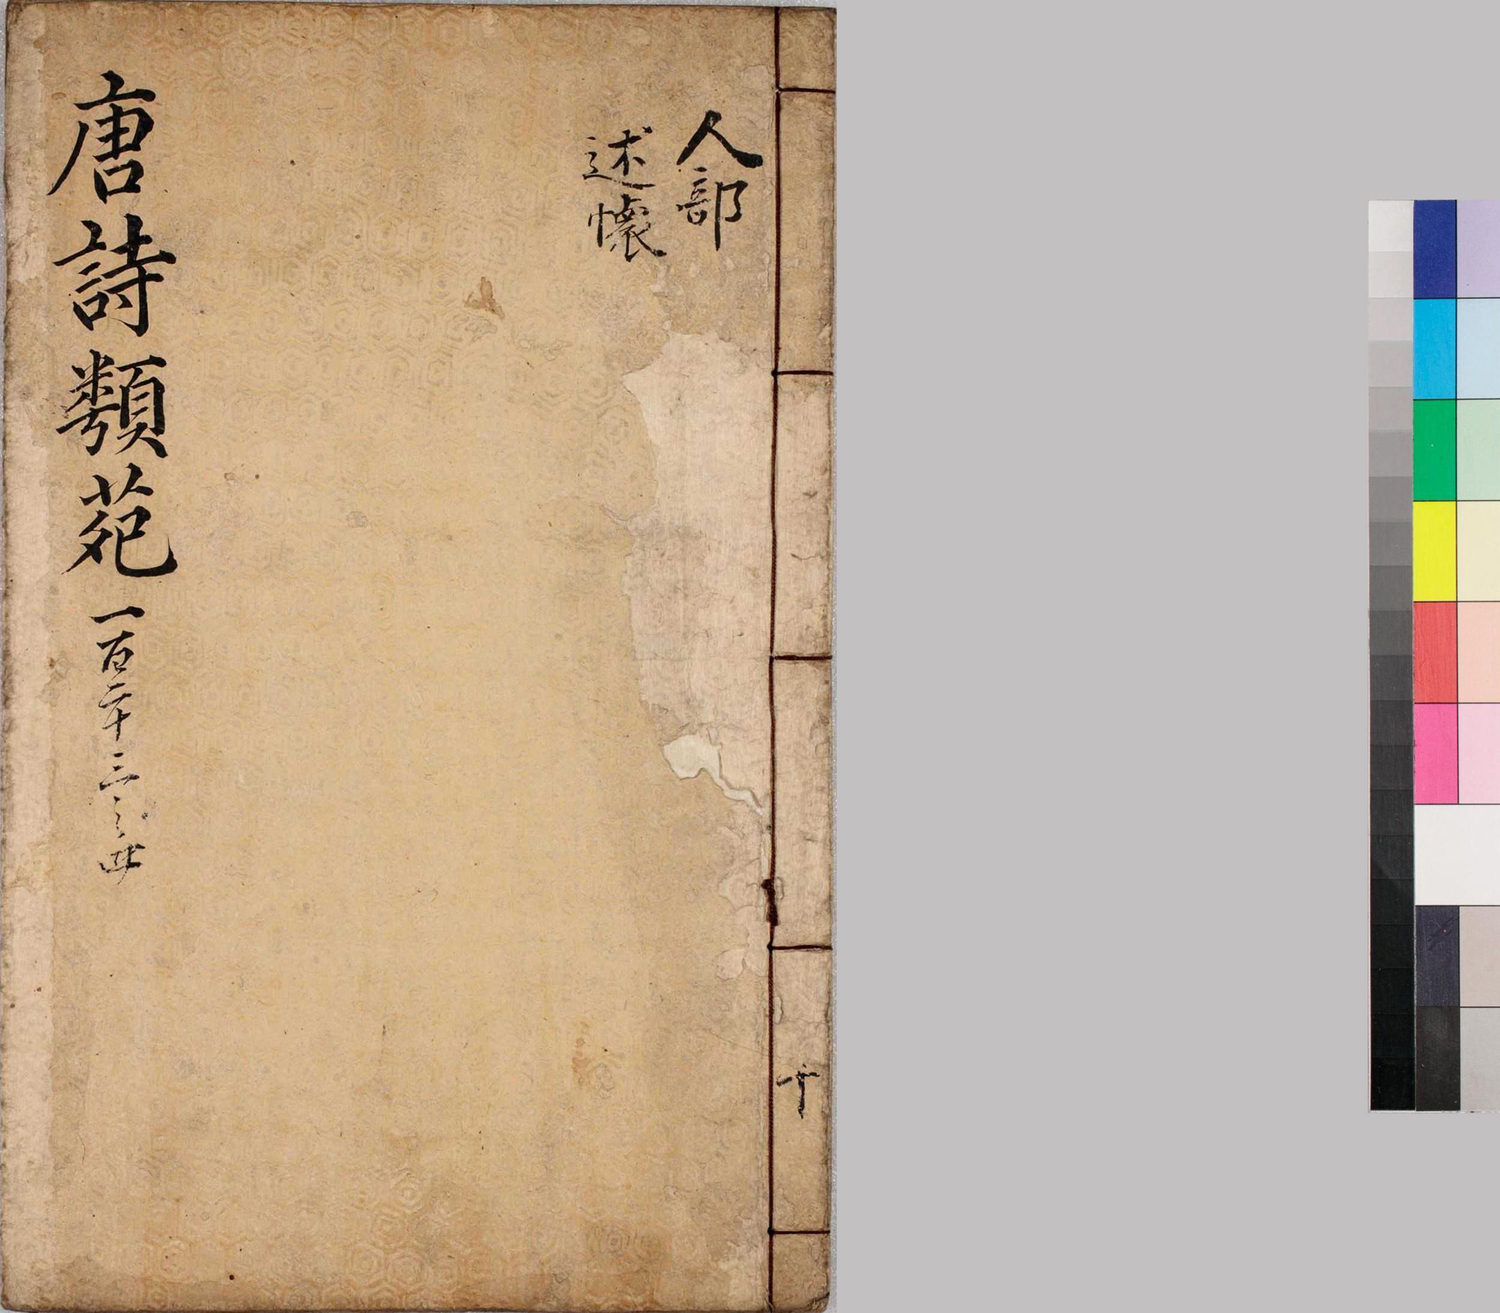 人部
述懷
唐詩類苑 一百二十三之
十